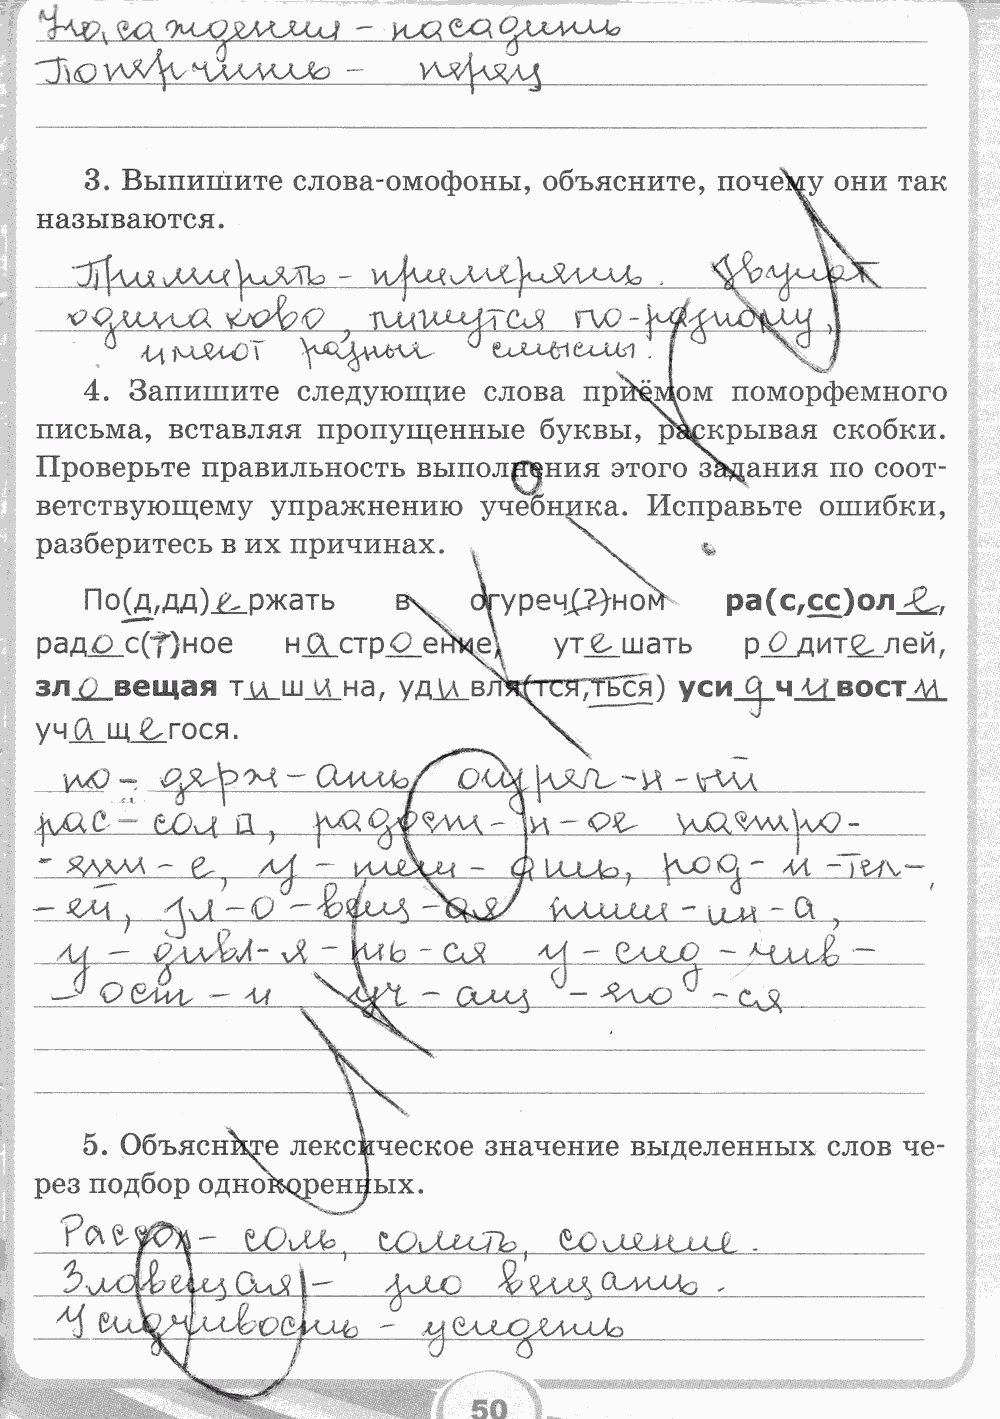 Насаждения - насадить
Поперчить - перец
3. Выпишите слова-омофоны, объясните, почему они так
называются.
Примирять - примерять. Звучат
одинаково, пишутся по-разному,
имеют разные смыслы.
4. Запишите следующие слова приёмом поморфемного
письма, вставляя пропущенные буквы, раскрывая скобки.
Проверьте правильность выполнения этого задания по соот-
ветствующему упражнению учебника. Исправьте ошибки,
разберитесь в их причинах.
По(д,дд)е ржать в огуреч(?)ном ра(с,сс)ол е,
рад о с(т)ное н а стр о ение, ут е шать р о дит е лей,
зл о вещая т и ш и на, уд и вля(тся,ться) уси д ч и вост и
уч а щ е гося.
по - держ - ать огуреч - н - ый
рас - сол, радост - н - ое настро-
- ени - е, у - теш - ать, род - и - тел-
- ей, зл - о - вещ - ая тиш - ин - а,
у - дивл - я - ть - ся у - сид - чив -
- ост - и уч - ащ - его - ся
5. Объясните лексическое значение выделенных слов че-
рез подбор однокоренных.
Рассол - соль, солить, соление.
Зловещая - зло вещать.
Усидчивость - усидеть
50